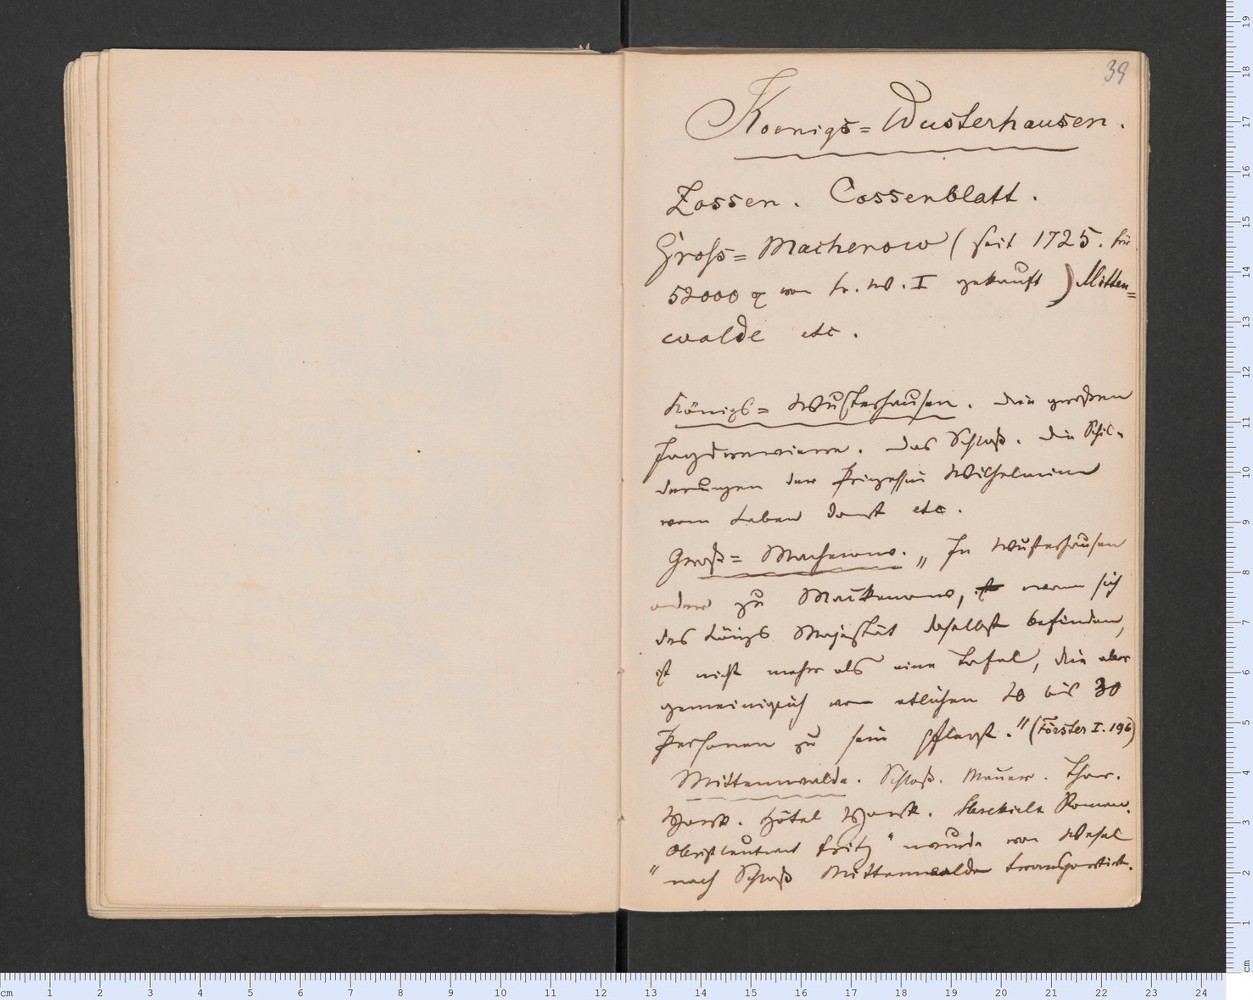 39
Koenigs=Wusterhausen.
Zossen. Cossenblatt.
Gross=Machenow (seit 1725. für
52000 von Fr. W. I gekauft) Mitten=
walde etc.
Königs=Wusterhausen. Die großen
Jagdreviere. Das Schloß. Die Schil=
derungen der Prinzessin Wilhelmine
vom Leben dort etc.
Groß=Machenow. „In Wusterhausen
oder zu Mackenow, wenn sich
des Königs Majestät daselbst befinden,
ist nicht mehr als eine Tafel, die aber
gemeiniglich von etlichen 20 bis 30
Personen zu sein pflegt." (Förster I. 196)
Mittenwalde. Schloß. Mauer. Thor.
York. Hôtel York. Roman.
Obristleutnant Fritz" wurde von Wesel
"nach Schloß Mittenwalde transportirt.